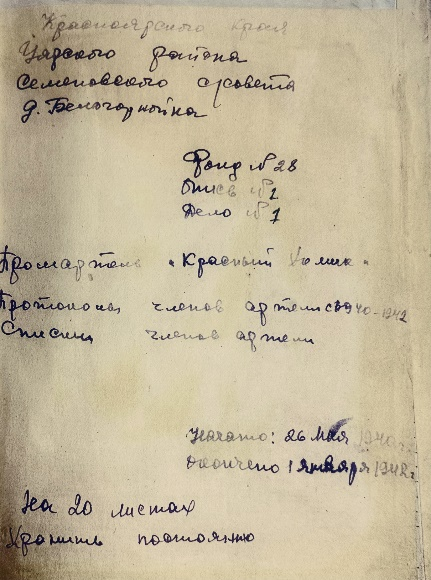 Красноярского края
Уярского района
Семеновского с/совета
д.
Фонд № 28
Опись № 1
Дело № 1
Промартель "Красный Химик"
Протоколы членов артели с 1940-1942
Списки членов артели
Начато: 26 мая 1940 г.
Окончено 1 января 1942 г.
На 20 листах
Хранить постоянно